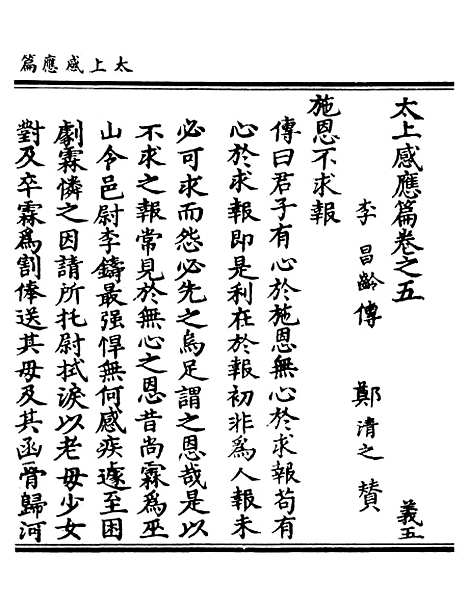 太上感應篇
太上感應篇卷之五　義五
李昌齡傳　鄭清之賛
施恩不求報
傳曰君子有心於施恩無心於求報茍有
心於求報即是利在於報初非爲人報未
必可求而怨必先之烏足謂之恩哉是以
不求之報常見於無心之恩昔尚霖爲巫
山令邑尉李鑄最强悍無何感疾遽至困
劇霖憐之因請所托尉拭淚以老母少女
對及卒霖爲割俸送其母及其函骨歸河